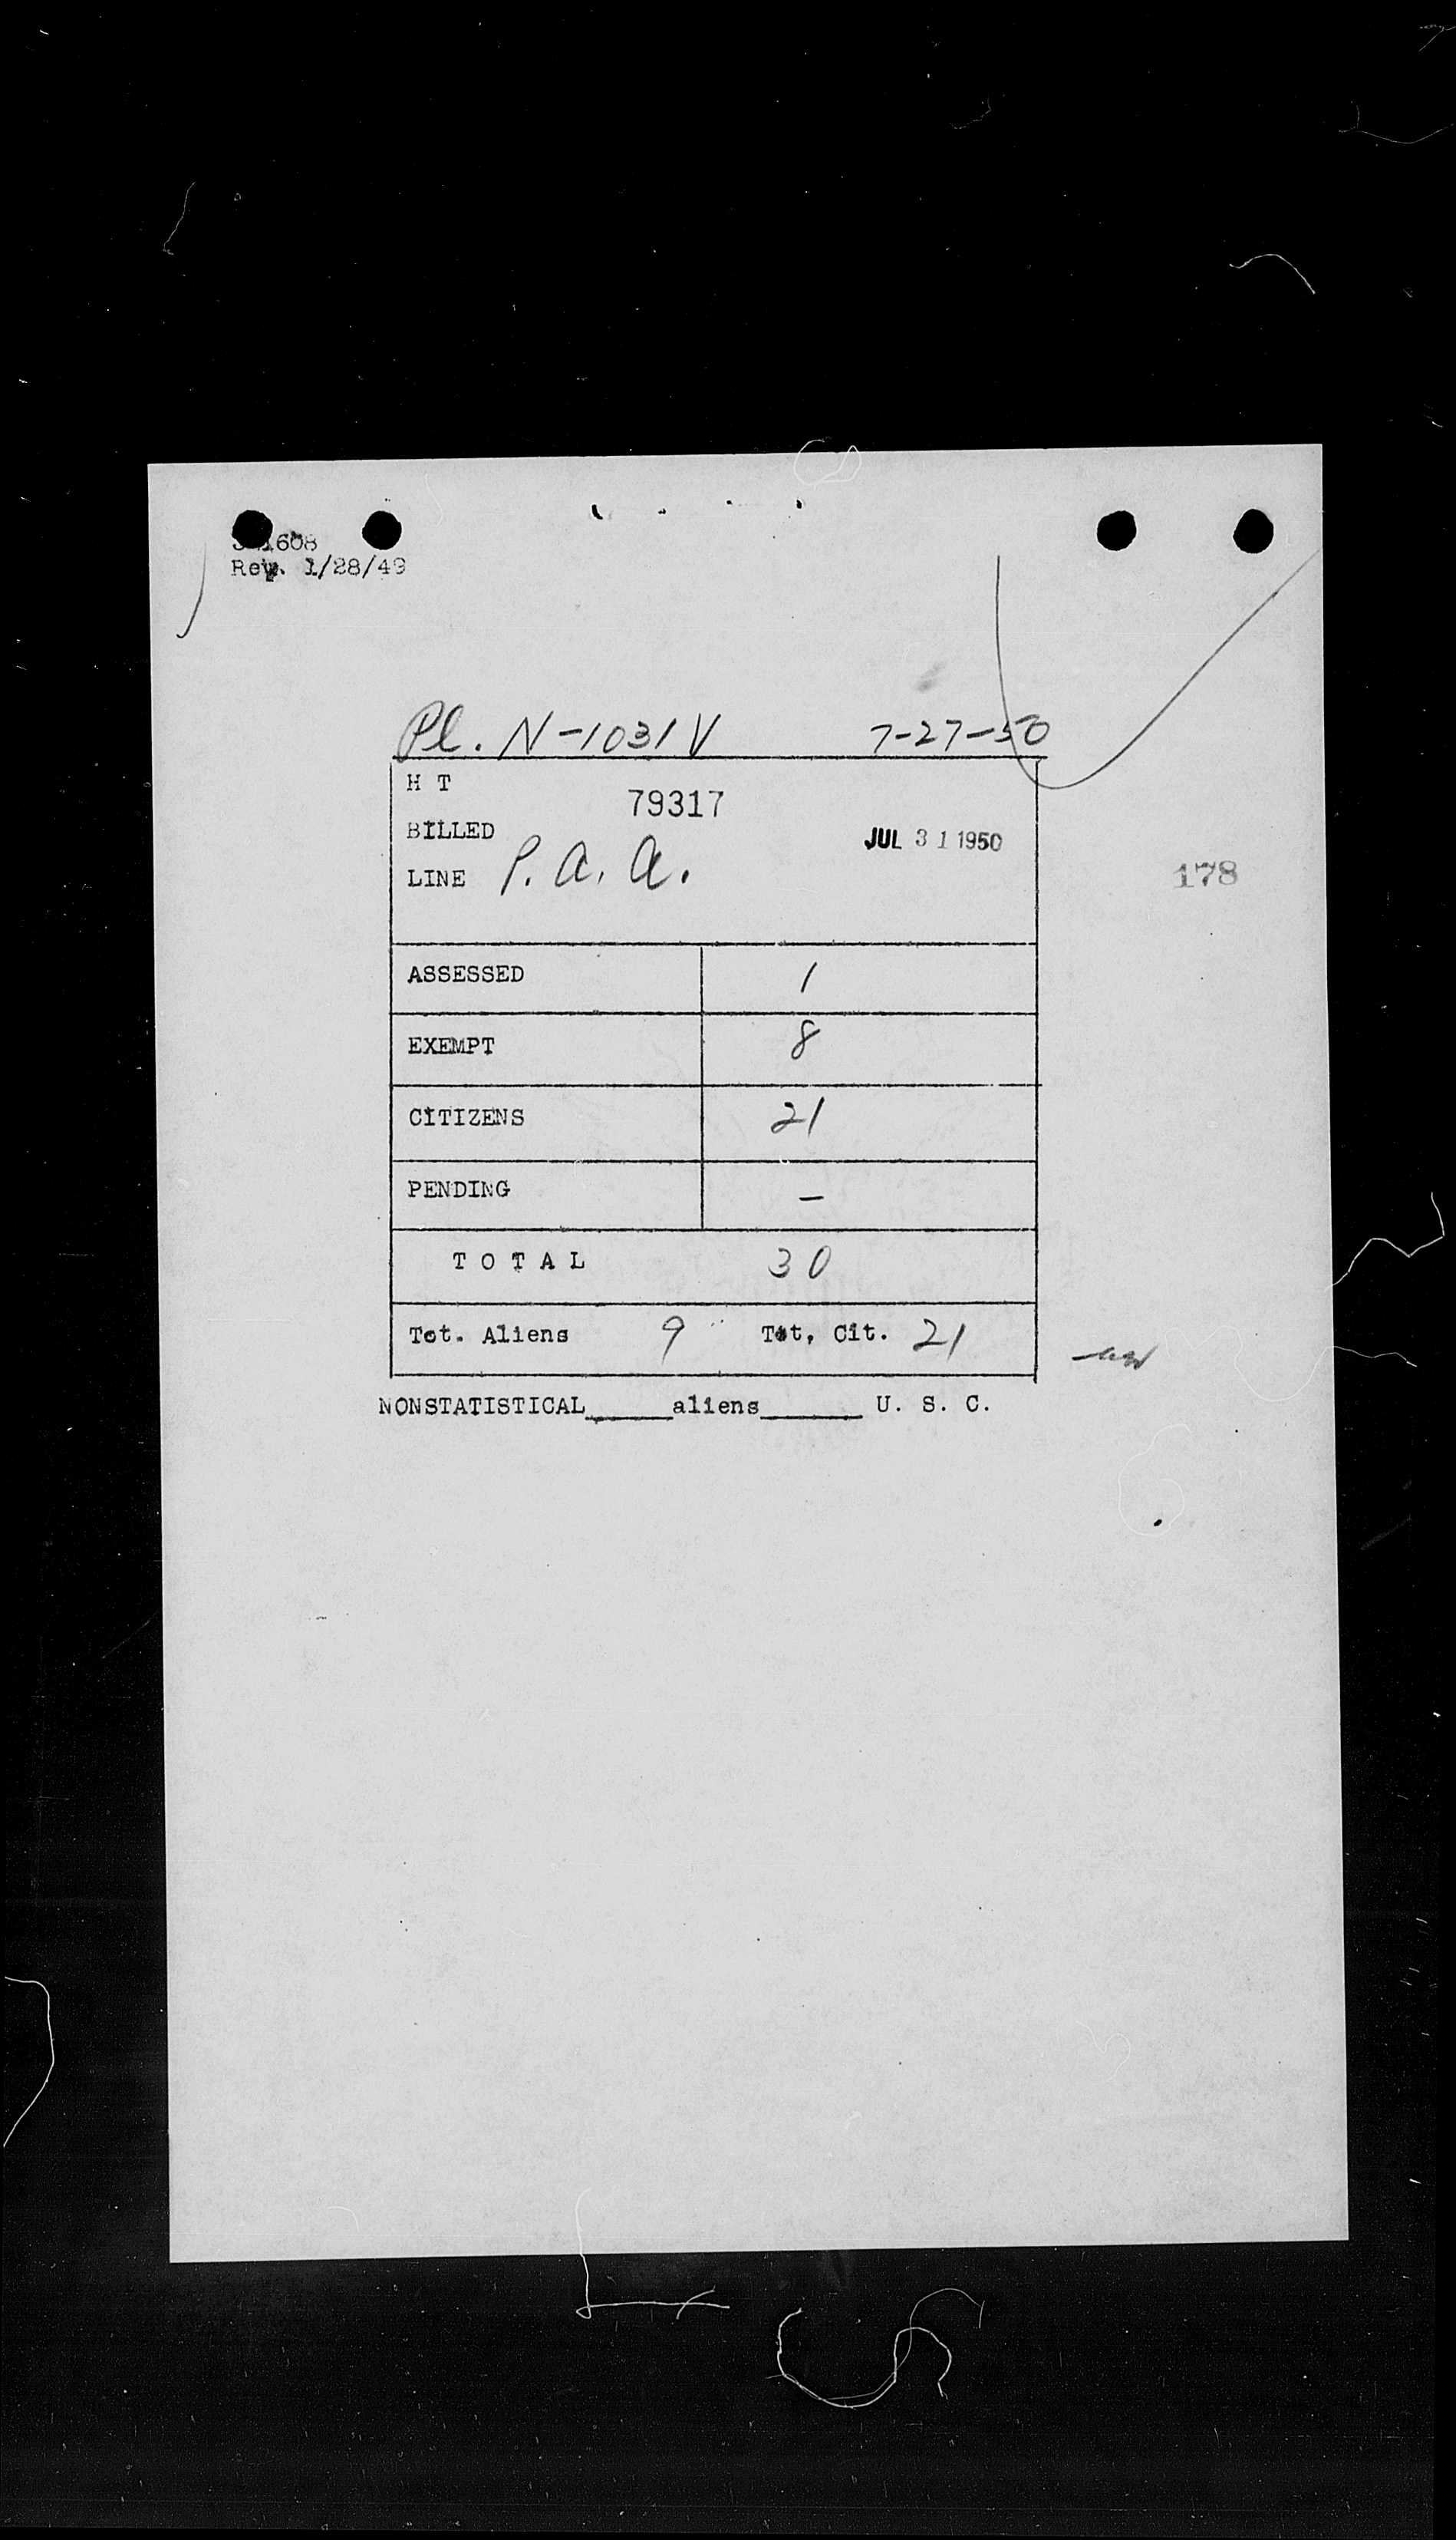 1608
Rev. 1/28/49
Pl. N-1031V 7-27-50
H T
79317
BILLED
JUL 31 1950
LINE P. a. a.
178
ASSESSED 1
EXEMPT 8
CITIZENS 21
PENDING –
TOTAL 30
Tot. Aliens 9 Tot, Cit. 21
NONSTATISTICAL_____aliens______ U. S. C.